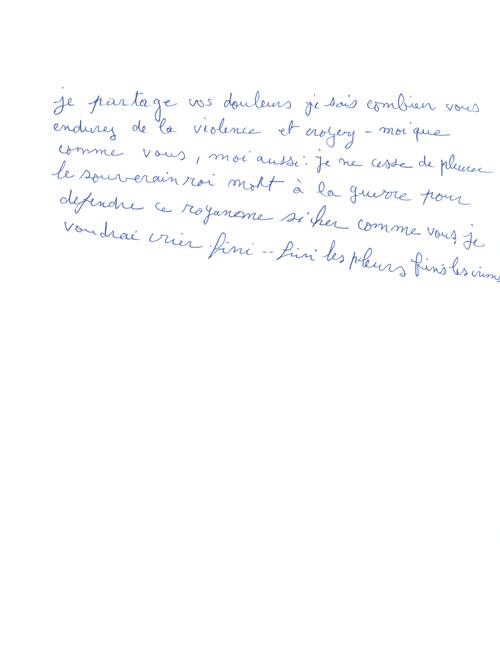 je partage vos douleurs je sais combien vous
endurez de la violence et croyez - moi que
comme vous, moi aussi : je ne cesse de pleurer
le souverain roi mort à la guerre pour
defendre ce royaneme si cher comme vous, je
voudrai crier fini -- fini les pleurs finis les crimes